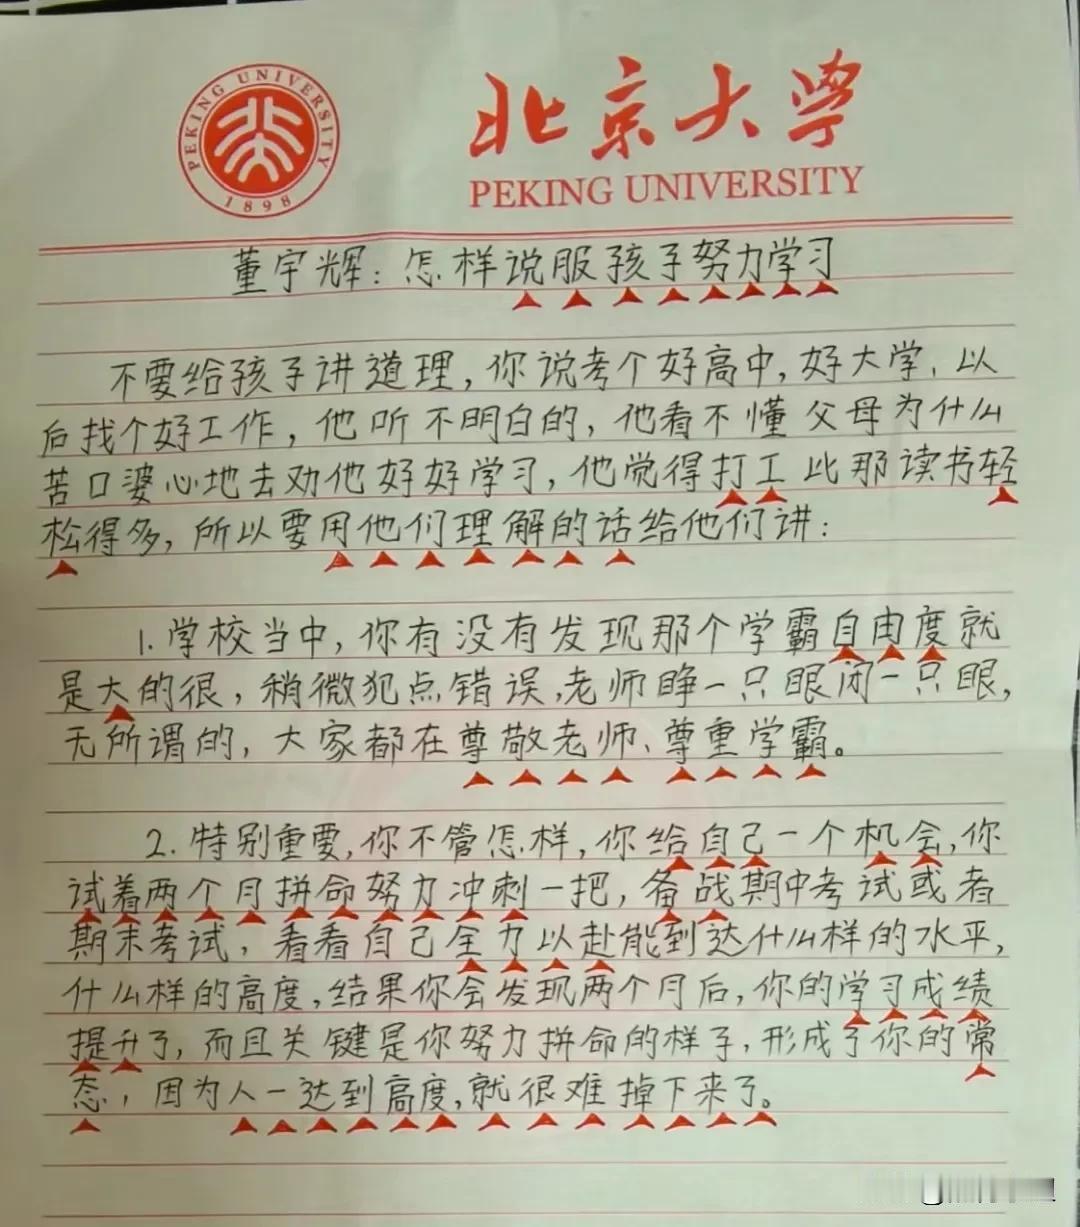 PEKING UNIVERSITY
1898
北京大学
PEKING UNIVERSITY
董宇辉：怎样说服孩子努力学习
不要给孩子讲道理，你说考个好高中，好大学、以
后找个好工作，他听不明白的，他看不懂父母为什么
苦口婆心地去劝他好好学习，他觉得打工比那读书轻
松得多，所以要用他们理解的话给他们讲：
1.学校当中，你有没有发现那个学霸自由度就
是大的很，稍微犯点错误，老师睁一只眼闭一只眼，
无所谓的，大家都在尊敬老师、尊重学霸。
2.特别重要，你不管怎样，你给自己一个机会，你
试着两个月拼命努力冲刺一把，备战期中考试或者
期末考试，看看自己全力以赴能到达什么样的水平，
什么样的高度，结果你会发现两个月后，你的学习成绩
提升了，而且关键是你努力拼命的样子，形成了你的常
态，因为人一达到高度，就很难掉下来了。